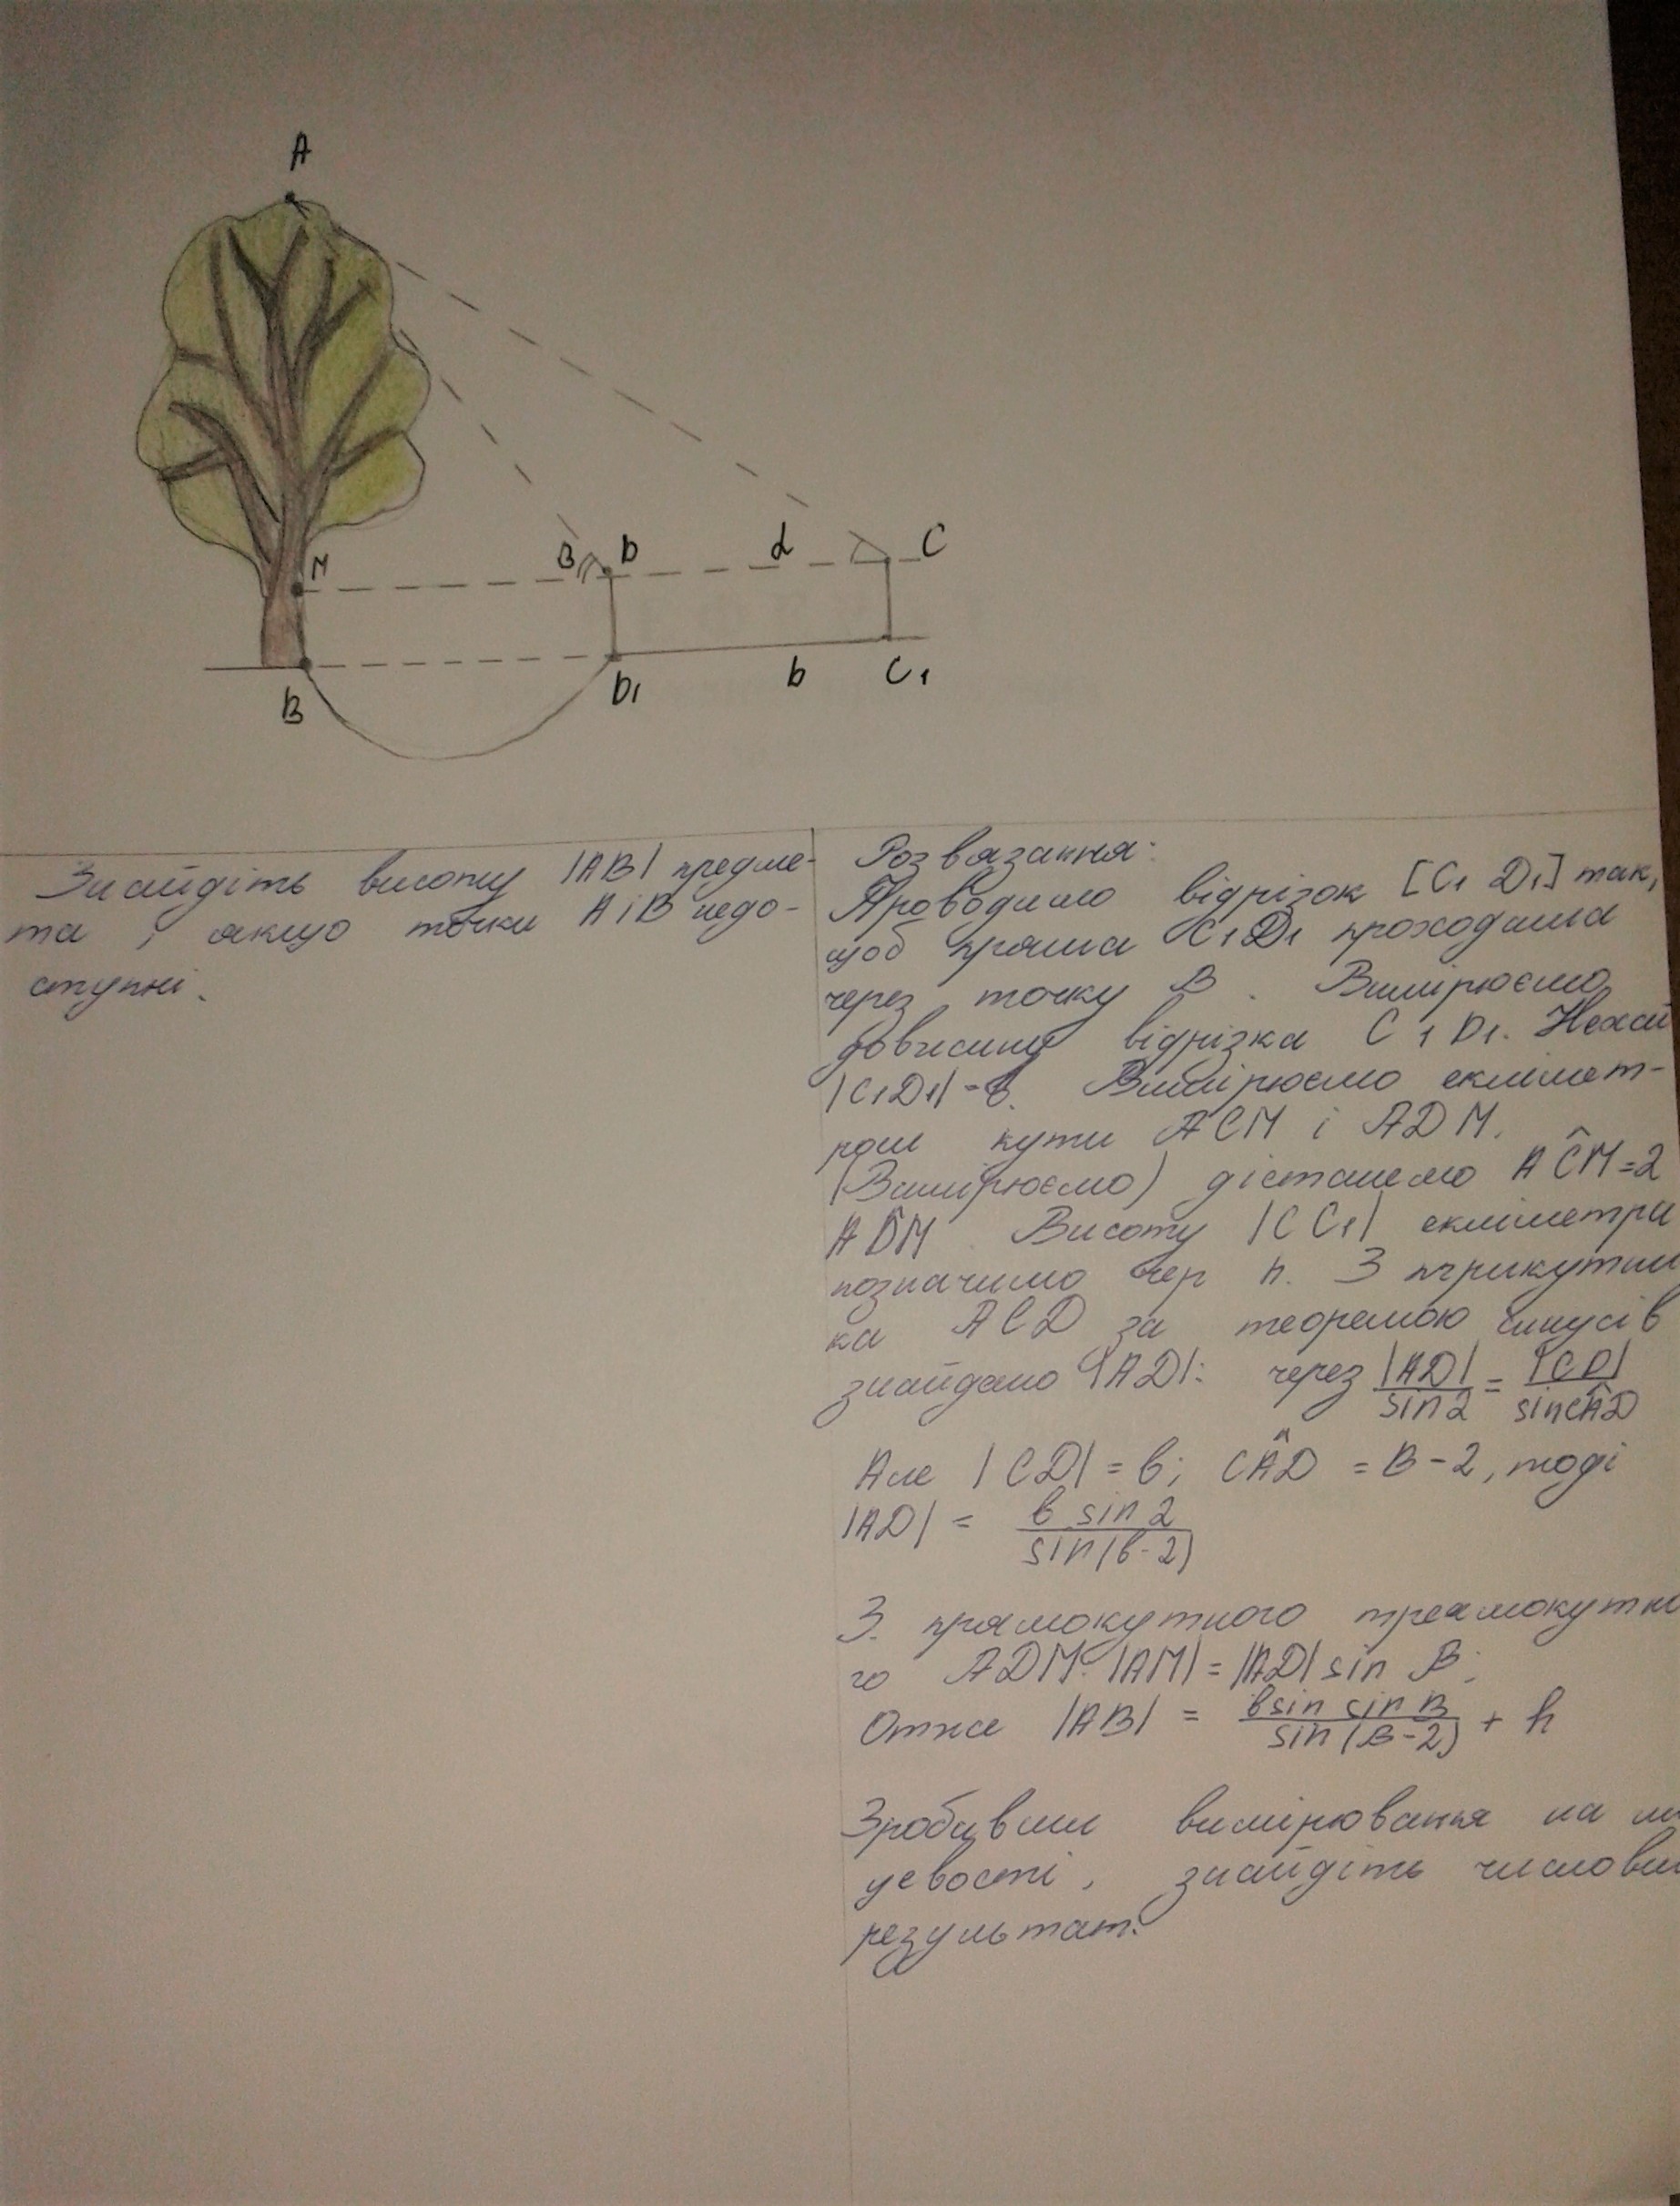 A
M
B D d C
B D1 b C1
Знайдіть висоту |AB| предме-
та , якщо точки A і B недо-
ступні.
Розвязання:
Проводимо відрізок [C1 D1] так,
щоб пряма C1D1 проходила
через точку B . Вимірюємо
довжину відрізка C1D1. Нехай
|C1D1| = b. Вимірюємо еклімет-
ром кути ACM і ADM.
(Вимірюємо) дістанемо AĈM=2
AD̂M Висоту |CC1| екліметра
позначимо чер h. З трикутни
ка ACD за теоремою синусів
знайдемо |AD|: через |AD|/sin2 = |CD|/sinCÂD
Але |CD| = b; CÂD = B-2, тоді
|AD| = b sin 2/sin(b-2)
З. прямокутного треамокутни
го ADM: |AM| = |AD| sin B;
Отже |AB| = b sin sin B/sin(B-2) + h
Зробивши вимірювання на мі
цевості, знайдіть числови
результат.